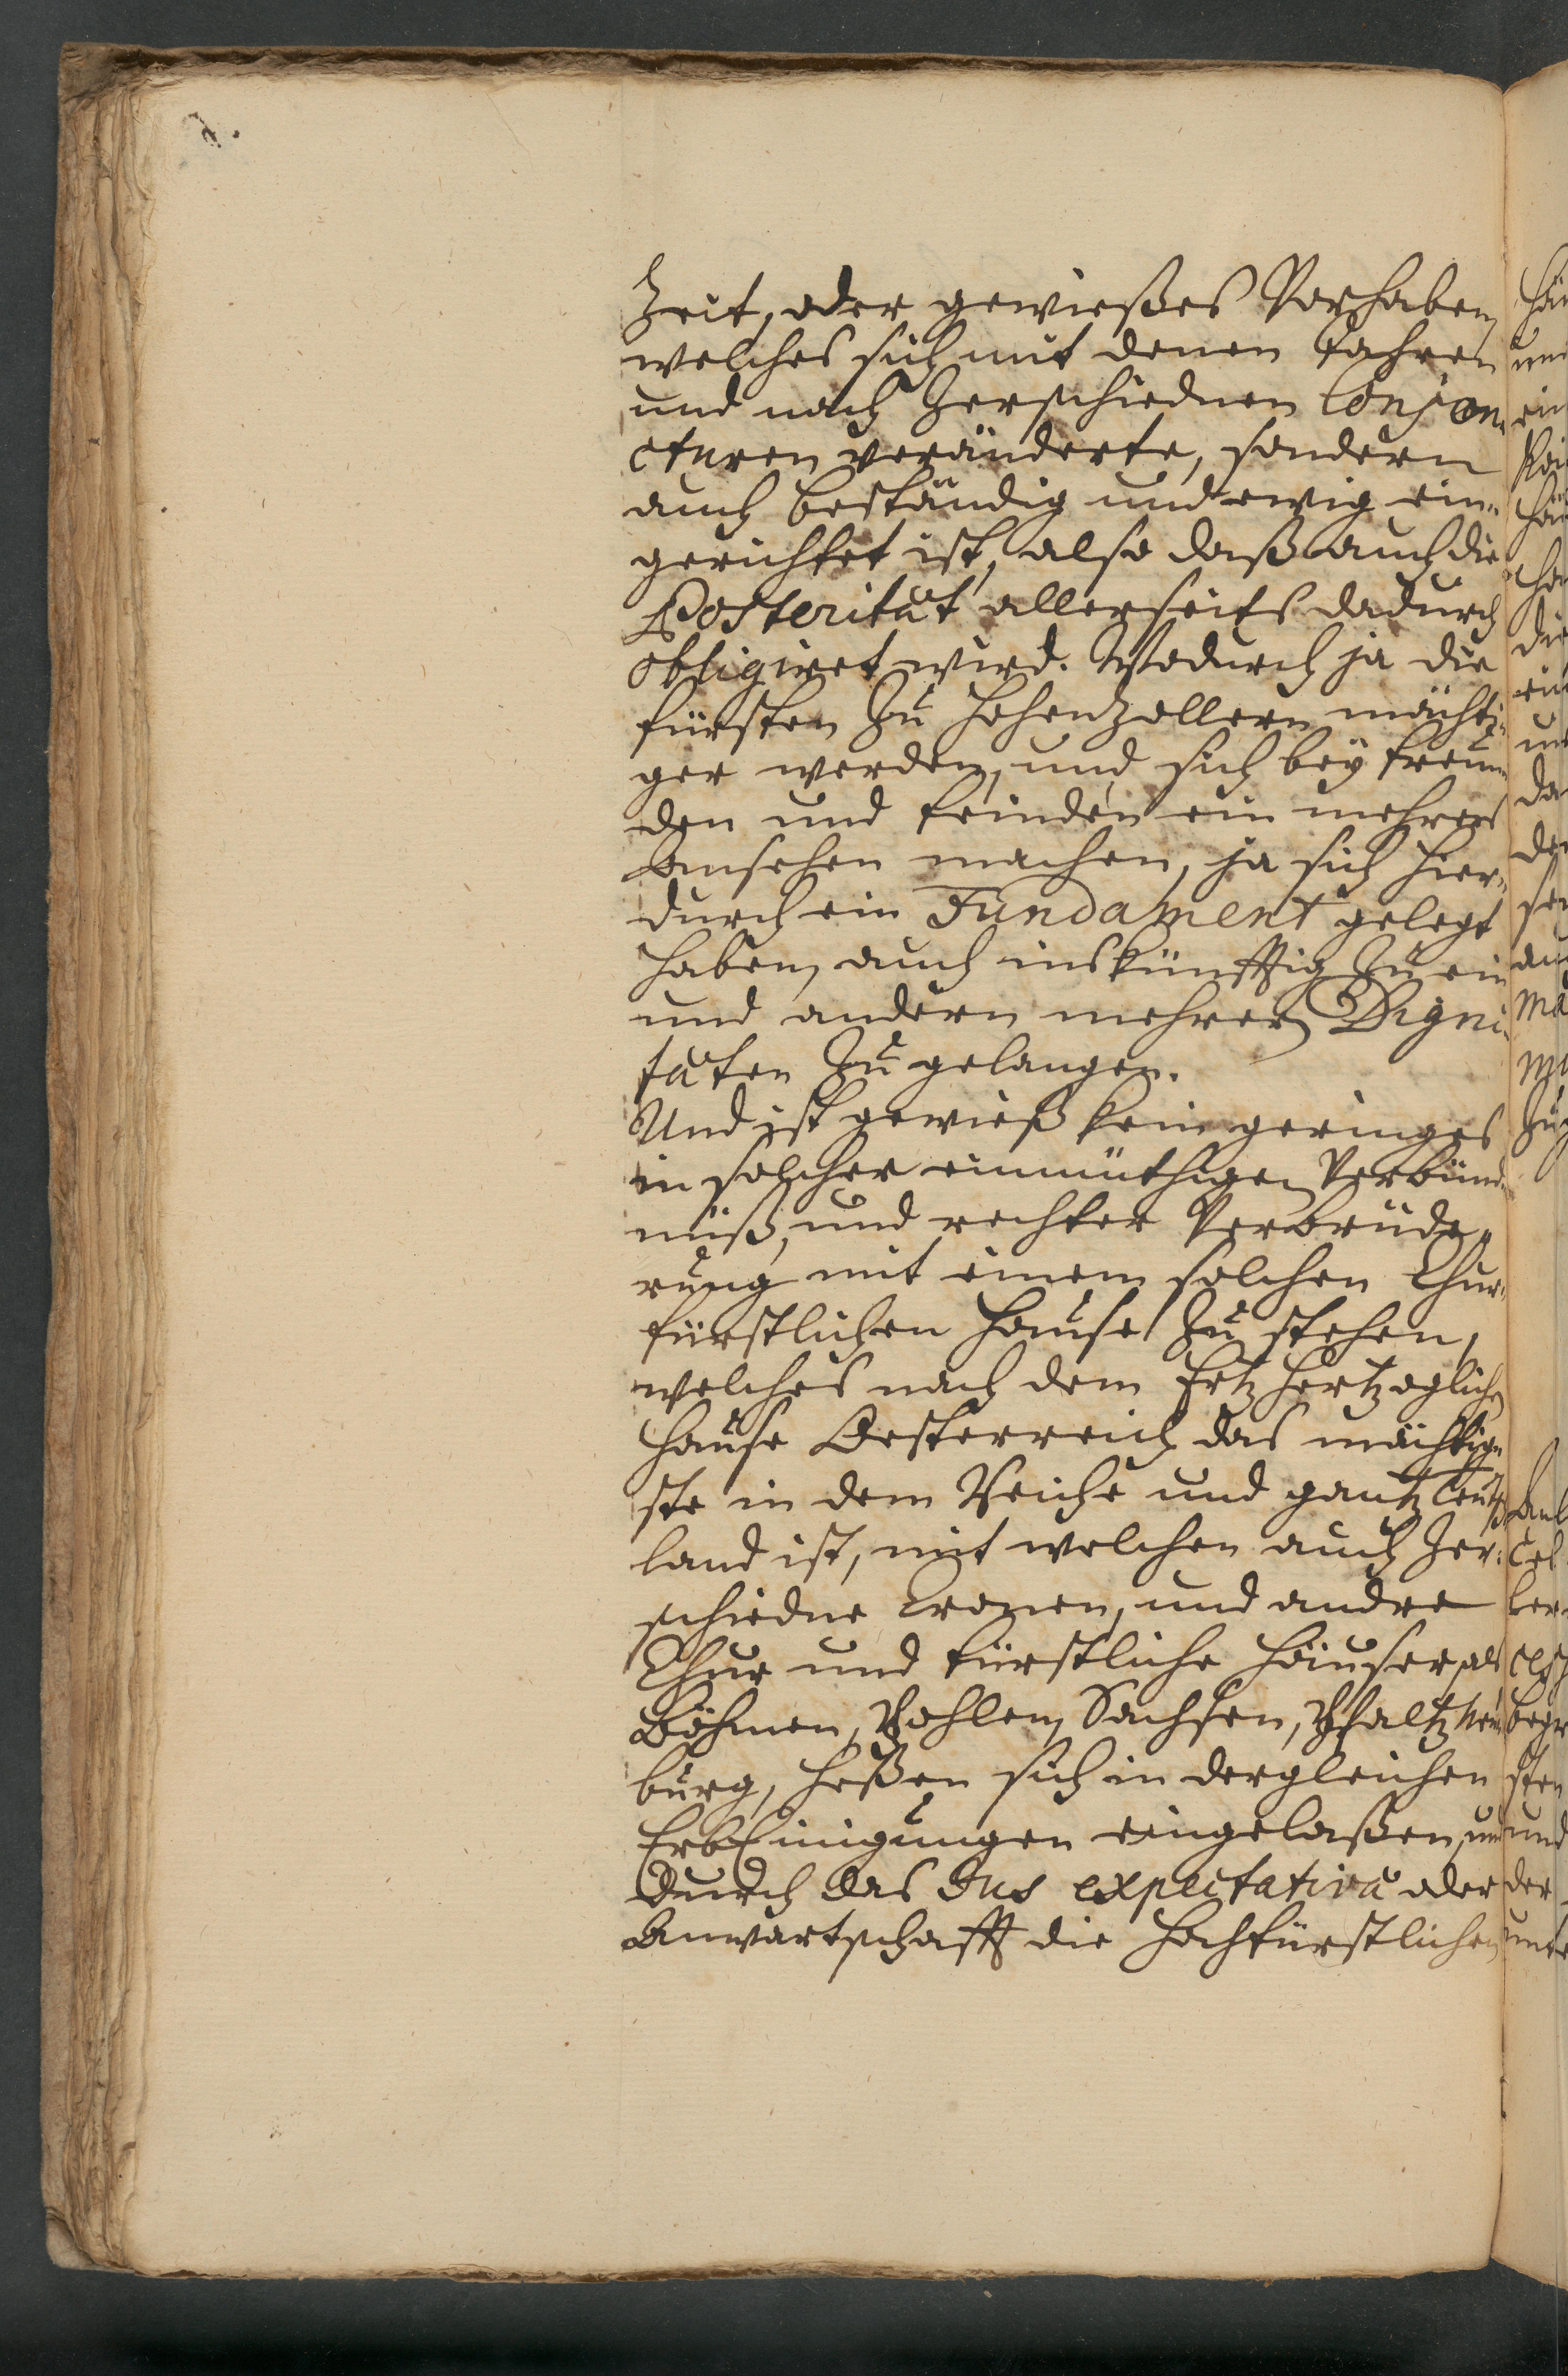 Zeit, oder gewießes Vorhaben,
welches sich mit denen Jahren
und nach Zerschiednen Conjon-
cturen veränderte, sondern
auch beständig und ewig ein-
gerichtet ist, also daß auch die
Posterität allerseits dadurch
obligiret wird. Wodurch ja die
fürsten Zu Hohenzollern mächti-
ger werden, und sich bey freun-
den und feinden ein mehrers
Ansehen machen, ja sich hier-
durch ein Fundament gelegt
haben, auch inskünfftig Zu ein
und andern mehrern Digni-
täten Zu gelangen.
Und ist gewieß kein geringes
in solcher einmüthigen Verbünd-
nüß, und rechter Verbrüde-
rung mit einem solchen Chur-
fürstlichen Hause Zu stehen,
welches nach dem Ertz Hertzoglichen
Hause Oesterreich das mächtig-
ste in dem Reiche und gantz Teutsch
land ist, mit welchen auch Zer-
schiedne Cronen, und andre
Chur und fürstliche Häuser, als
Böhmen, Pohlen, Sachsen, Pfaltz Neu
burg, Heßen sich in dergleichen
ErbEinigungen eingelaßen, und
Durch das Jus expectativa oder
Anwartschafft die Hochfürstlichen